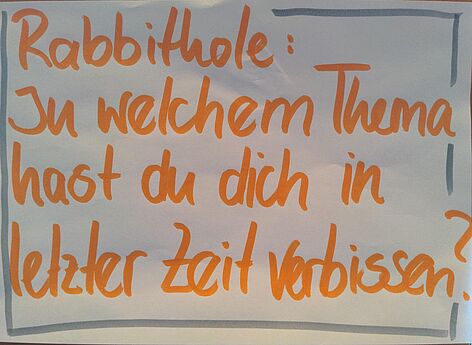 Rabbithole:
In welchem Thema
hast du dich in
letzter Zeit verbissen?